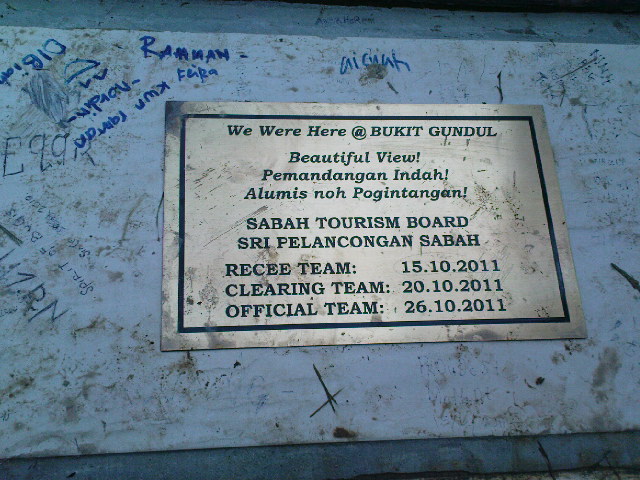 RAHMAN -
FEIPA
E99
We Were Here @ BUKIT GUNDUL
Beautiful View!
Pemandangan Indah!
Alumis noh Pogintangan!
SABAH TOURISM BOARD
SRI PELANCONGAN SABAH
RECEE TEAM: 15.10.2011
CLEARING TEAM: 20.10.2011
OFFICIAL TEAM: 26.10.2011